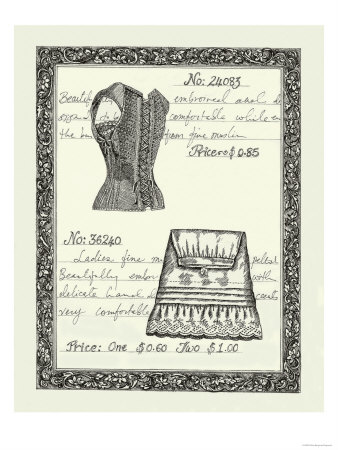 No: 24083
Beautif embroidered and
comfortable while en
the ba from fine muslin
Price $ 0.85
No: 36240
Ladies fine m
Beautifully embr with
delicate hand
very comfortable
Price: One $0.60 Two $1.00